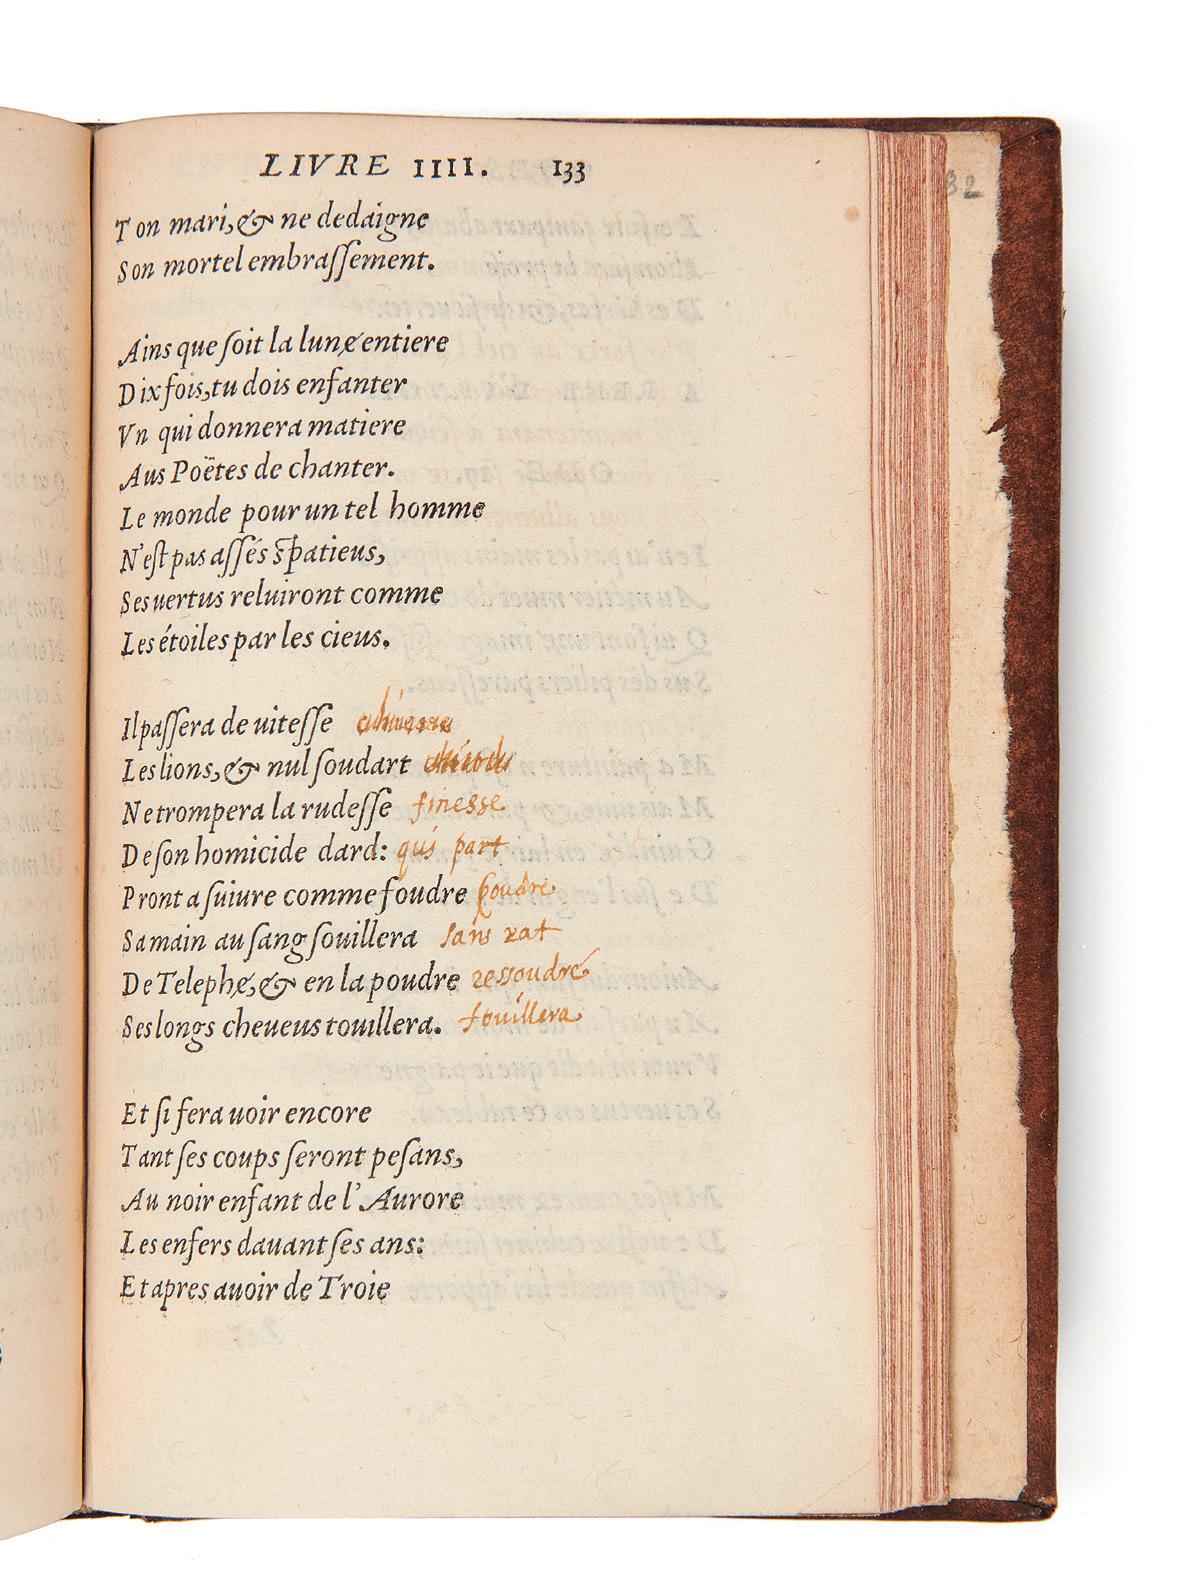 LIVRE IIII. 133
32
Ton mari, & ne dedaigne
Son mortel embraſſement.
Ains que ſoit la lune̸ entiere
Dix fois, tu dois enfanter
Vn qui donnera matiere
Aus Poëtes de chanter.
Le monde pour un tel homme
N'eſt pas aſſés ſpatieus,
Ses uertus reluiront comme
Les étoiles par les cieus.
Il paſſera de uiteſſe
Les lions, & nul ſoudart
Ne trompera la rudeſſe finesse
De ſon homicide dard: qui part
Pront a ſuiure comme foudre poudre
Sa main au ſang ſouillera sans
De Telephe̸, & en la poudre ressoudre
Ses longs cheueus touillera. fouillera
Et ſi fera uoir encore
Tant ſes coups ſeront peſans,
Au noir enfant de l'Aurore
Les enfers dauant ſes ans:
Et apres auoir de Troie